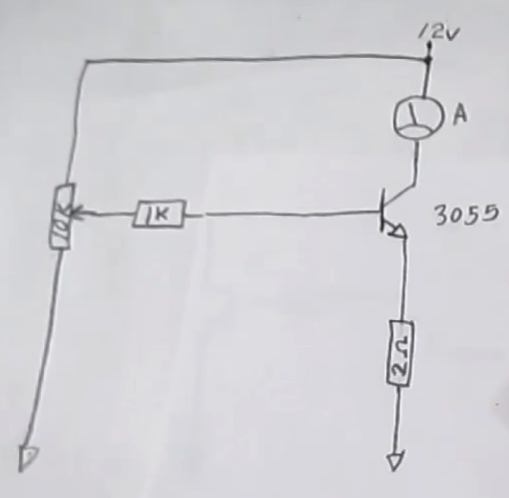 12v
A
10K
1K
3055
2Ω